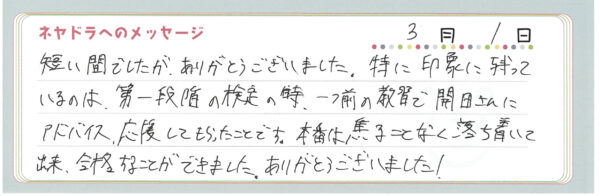 ネヤドラへのメッセージ
3月 1日
短い間でしたが、ありがとうございました。特に印象に残って
いるのは、第一段階の検定の時、一つ前の教習で開田さんに
アドバイス、応援してもらったことです。本番は焦ることなく落ち着いて
出来、合格することができました。ありがとうございました!